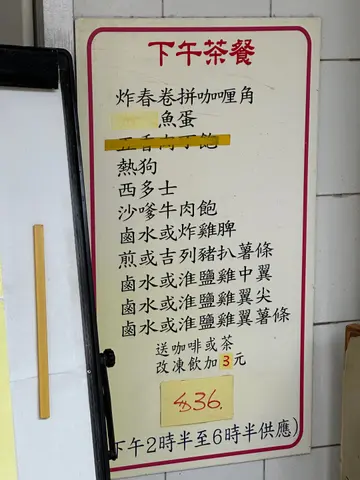 下午茶餐
炸春卷拼咖喱角
魚蛋
五香肉丁飽
熱狗
西多士
沙嗲牛肉飽
鹵水或炸雞脾
煎或吉列豬扒薯條
鹵水或淮鹽雞中翼
鹵水或淮鹽雞翼尖
鹵水或淮鹽雞翼薯條
送咖啡或茶
改凍飲加3元
$36.
下午2時半至6時半供應)